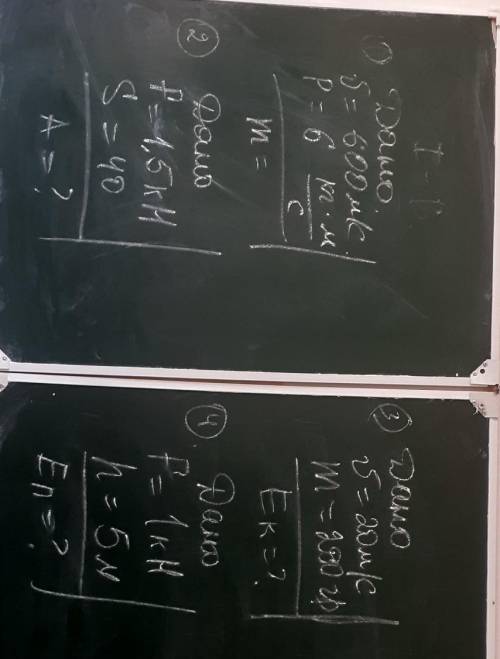 I - В
① Дано
υ = 600 м/с
P = 6 кг·м/с
m =
② Дано
F = 1,5 кН
S = 40
A = ?
③ Дано
υ = 20 м/с
m = 200 гр
Eк = ?
④ Дано
F = 1 кН
h = 5 м
Eп = ?